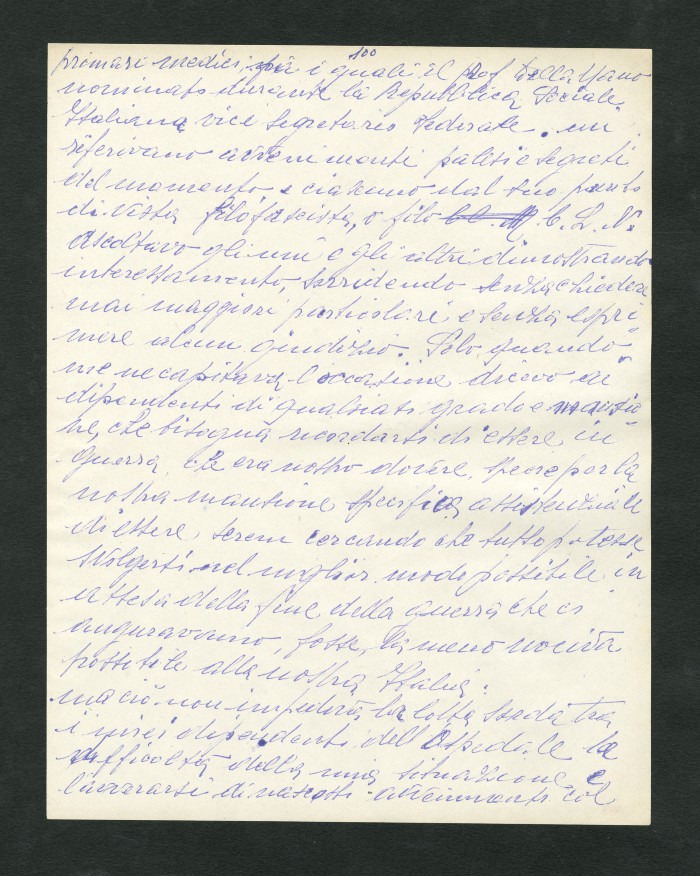 100
primari medici, fra i quali il prof Della Mano
nominato durante la Repubblica Sociale
Italiana vice segretario federale. mi
riferivano avvenimenti palesi e segreti
del momento e ciascuno dal suo punto
di vista filofascista, o filo C. L. N.
ascoltavo gli uni e gli altri dimostrando
interessamento, sorridendo senza chiedere
mai maggiori particolari e senza espri
mere alcun giudizio. Solo quando
me ne capitava l'occasione dicevo ai
dipendenti di qualsiasi grado e mansio
ne, che bisogna ricordarsi di essere in
guerra che era nostro dovere, specie per la
nostra mansione specifica assistenziale
di essere sereni cercando che tutto potesse
svolgersi nel miglior modo possibile in
attesa della fine della guerra che ci
auguravamo, fosse la meno nociva
possibile alla nostra Italia.
ma ciò non impediva la lotta sorda tra
i miei dipendenti dell'Ospedale la
difficoltà della mia situazione e
l'avverarsi di nascosti avvenimenti col